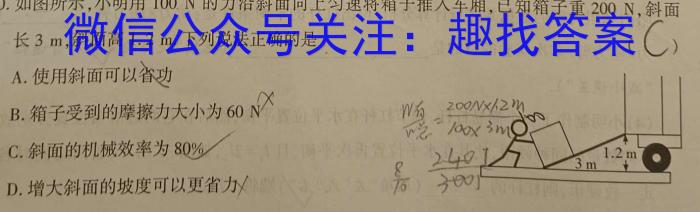 如图所示,小明用 100 N 的力沿斜面向上匀速将箱子推入车厢,已知箱子重 200 N,斜面
长 3 m,斜面高 1.2 m,下列说法正确的是
微信公众号关注:趣找答案
C)
A. 使用斜面可以省功
B. 箱子受到的摩擦力大小为 60 N
C. 斜面的机械效率为 80%
D. 增大斜面的坡度可以更省力
W有
W总
=
200N×1.2m
100×3m
240J
300J
8
10
3 m
1.2 m